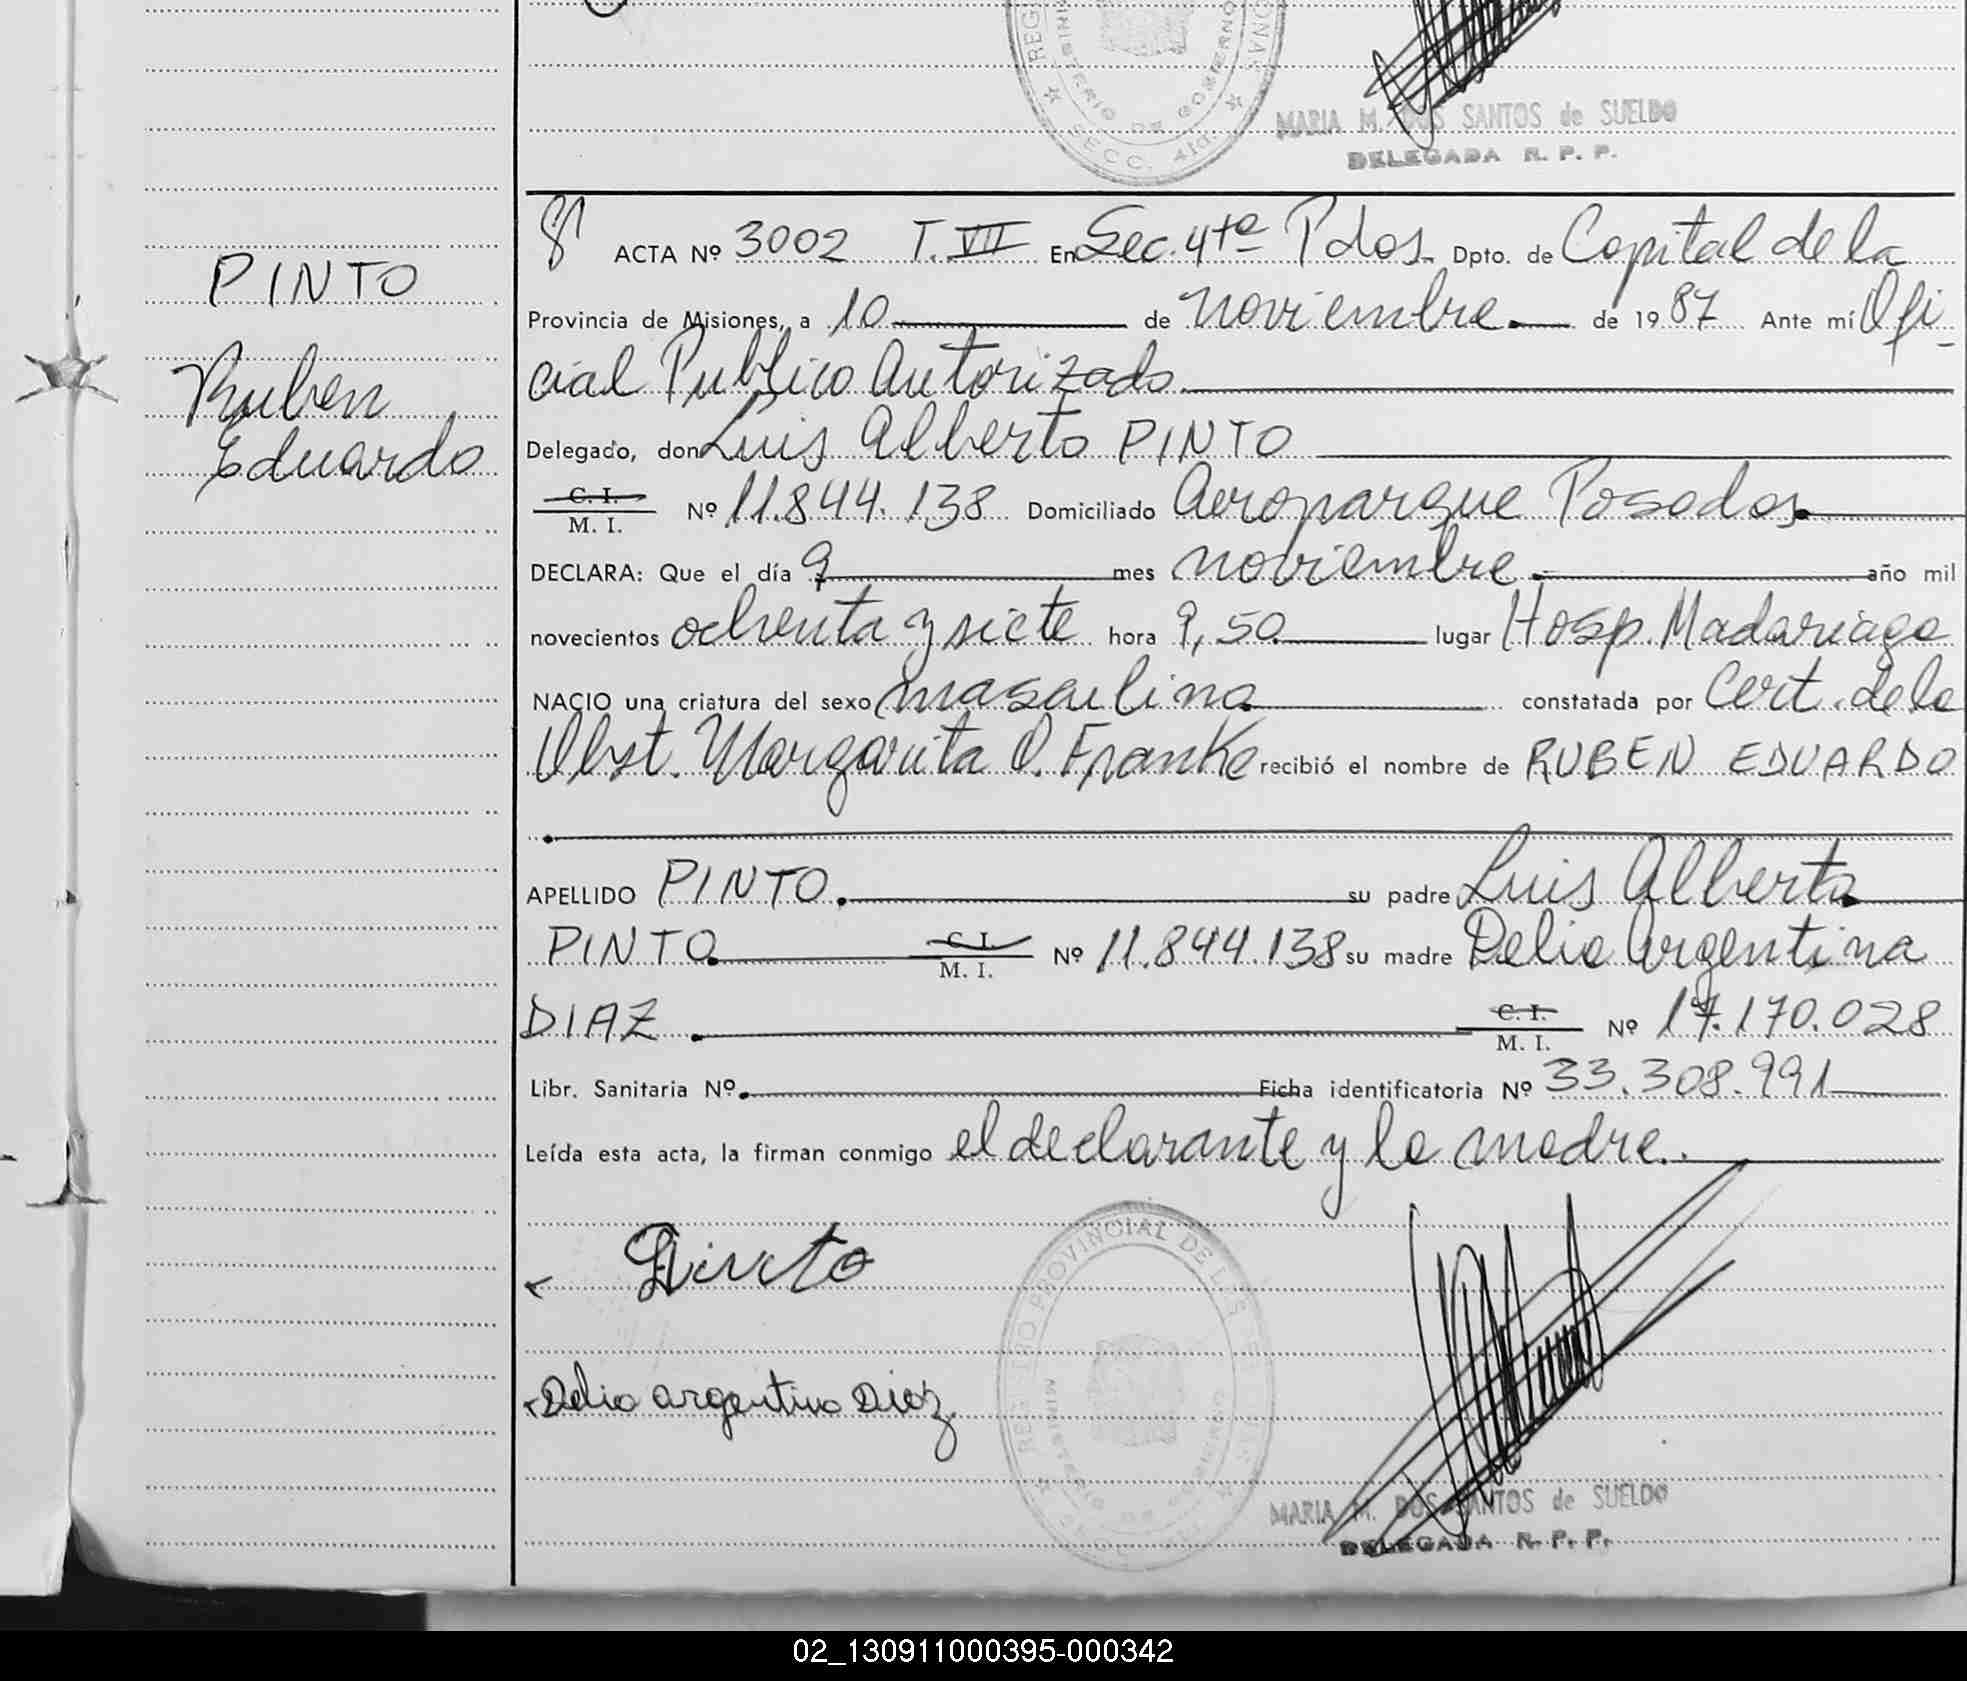 MARIA M. DOS SANTOS de SUELDO
DELEGADA R. P. P.
PINTO
Ruben
Eduardo
ACTA Nº 3002 T. VII En Sec. 4ta Pdas. Dpto. de Capital de la
Provincia de Misiones, a 10 de noviembre de 1987 Ante mí Ofi-
cial Publico Autorizado
Delegado, don Luis Alberto PINTO
C. I. / M. I. Nº 11.844.138 Domiciliado Aeroparque Posadas.
DECLARA: Que el día 9 mes noviembre año mil
novecientos ochenta y siete hora 9,50 lugar Hosp. Madariaga
NACIO una criatura del sexo masculino constatada por Cert. de la
Obst. Margarita O. Franke recibió el nombre de RUBEN EDUARDO
APELLIDO PINTO. su padre Luis Alberto
PINTO C. I. / M. I. Nº 11.844.138 su madre Delia Argentina
DIAZ. C. I. / M. I. Nº 17.170.028
Libr. Sanitaria Nº Ficha identificatoria Nº 33.308.991
Leída esta acta, la firman conmigo el declarante y la madre.
REGISTRO PROVINCIAL DE LAS PERSONAS
MINISTERIO DE GOBIERNO
Pinto
Delia argentina Diaz
MARIA M. DOS SANTOS de SUELDO
DELEGADA R. P. P.
02_130911000395-000342